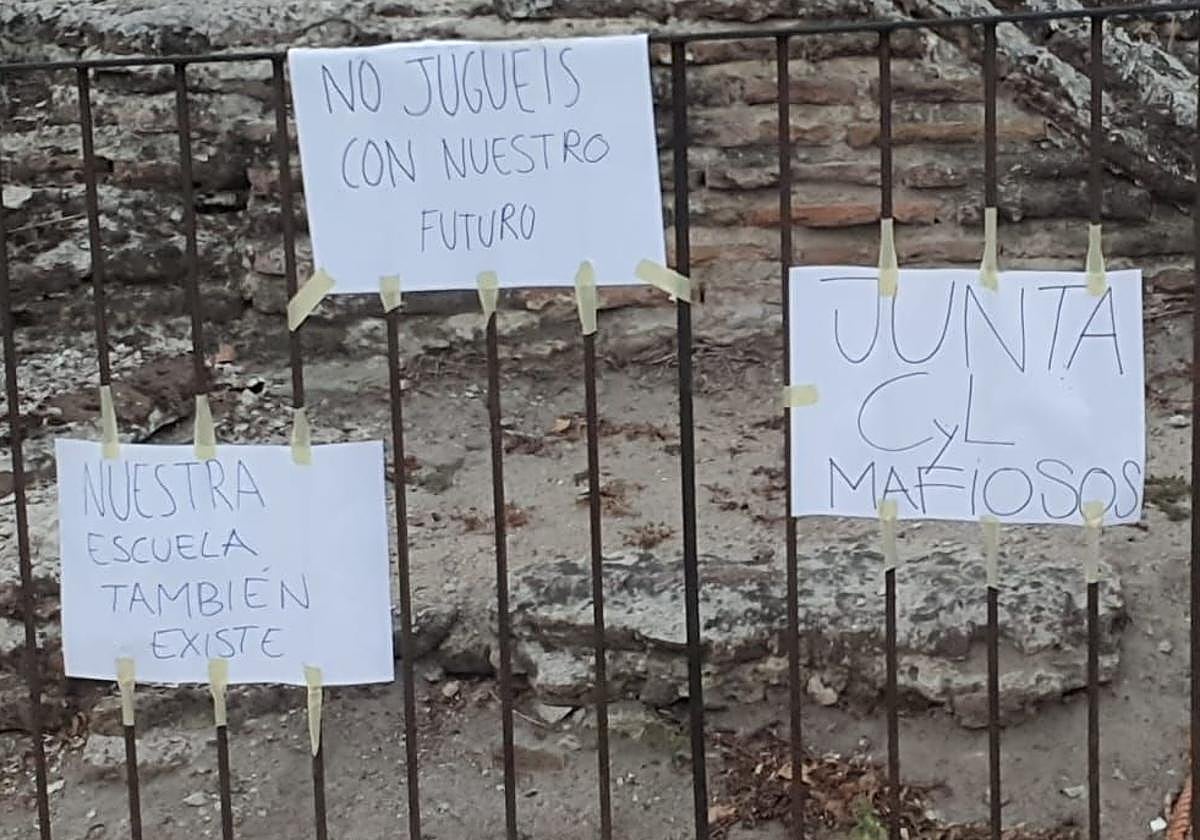 NO JUGUEIS
CON NUESTRO
FUTURO
NUESTRA
ESCUELA
TAMBIÉN
EXISTE
JUNTA
CyL
MAFIOSOS